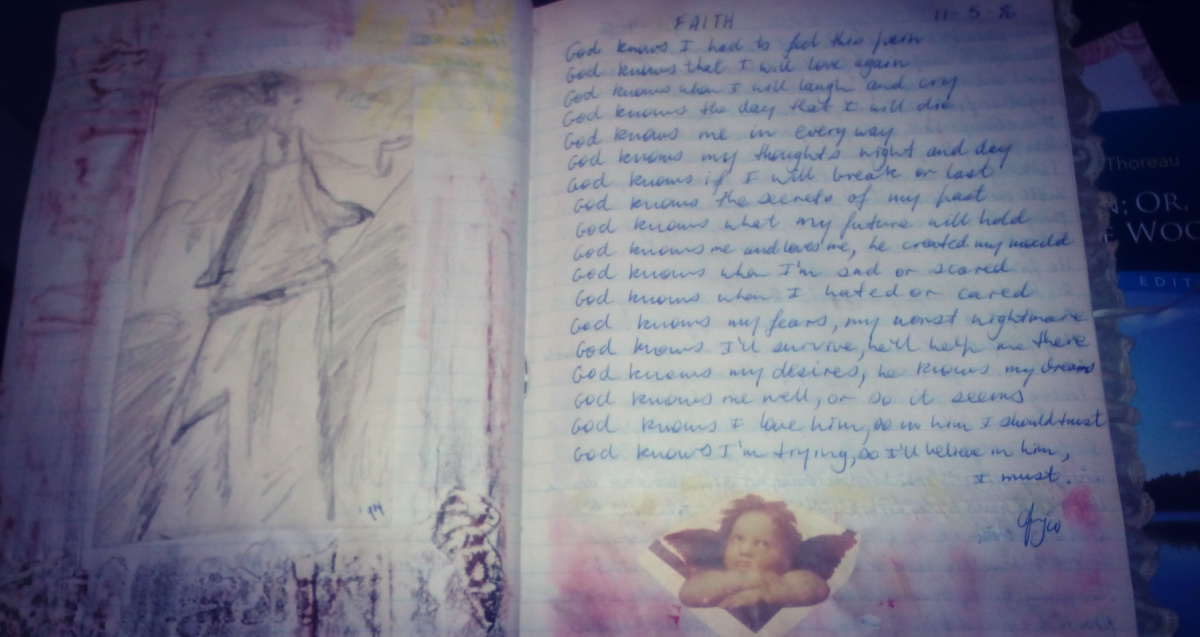 FAITH
11-5-96
God knows I had to feel this pain
God knows that I will love again
God knows when I will laugh and cry
God knows the day that I will die
God knows me in every way
God knows my thoughts night and day
God knows if I will break or last
God knows the secrets of my past
God knows what my future will hold
God knows me and loves me, he created my mould
God knows when I'm sad or scared
God knows when I hated or cared
God knows my fears, my worst nightmare
God knows I'll survive, he'll help me there
God knows my desires, he knows my dreams
God knows me well, or so it seems
God knows I love him, so in him I should trust
God knows I'm trying, so I'll believe in him,
I must.
'94
Thoreau
; OR,
WOO
EDIT